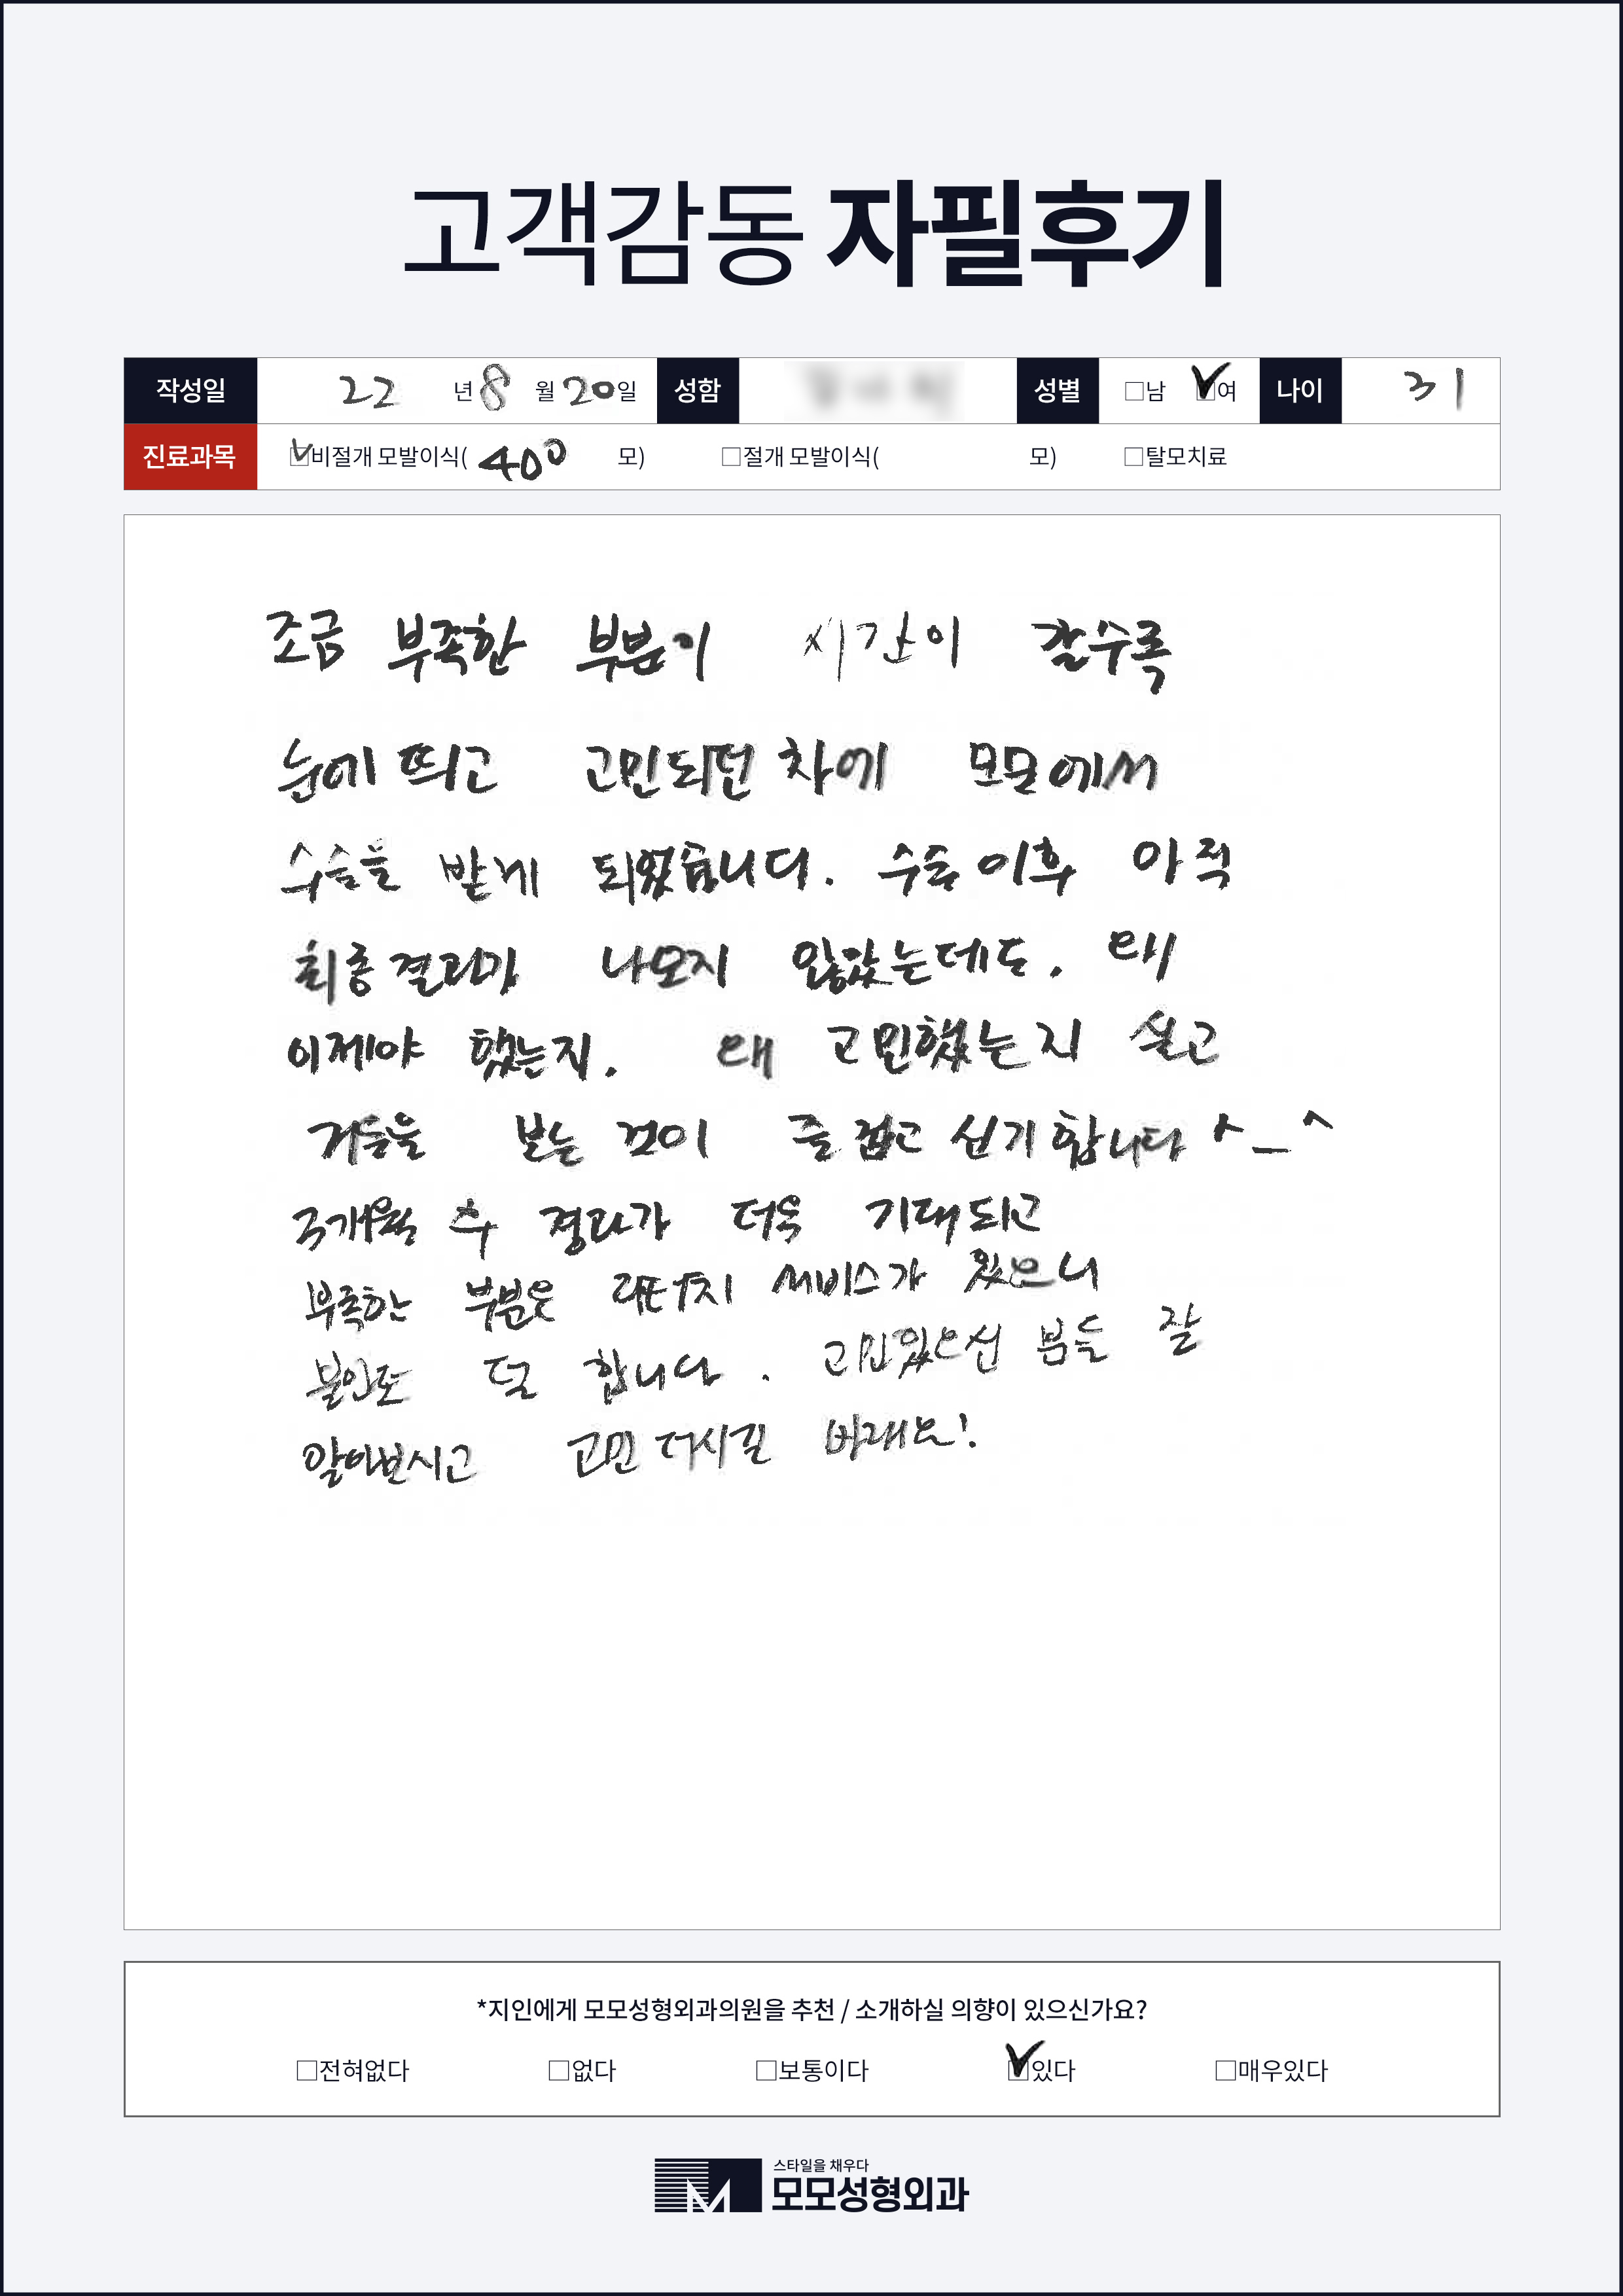 고객감동 자필후기
작성일 22 년 8 월 20 일 성함 성별 □남 ☑여 나이 31
진료과목 ☑비절개 모발이식( 400 모) □절개 모발이식( 모) □탈모치료
조금 부족한 부분이 시간이 갈수록
눈에 띄고 고민되던 차에 모모에서
수술을 받게 되었습니다. 수술 이후 아직
최종결과가 나오지 않았는데도, 왜
이제야 했는지. 왜 고민했는지 싶고
거울을 보는 것이 즐겁고 신기합니다 ^_^
3개월 후 결과가 더욱 기대되고
부족한 부분은 리터치 서비스가 있으니
불안도 덜 합니다. 고민있으신 분들 잘
알아보시고 고민 더시길 바래요!
*지인에게 모모성형외과의원을 추천 / 소개하실 의향이 있으신가요?
□전혀없다 □없다 □보통이다 ☑있다 □매우있다
스타일을 채우다
모모성형외과